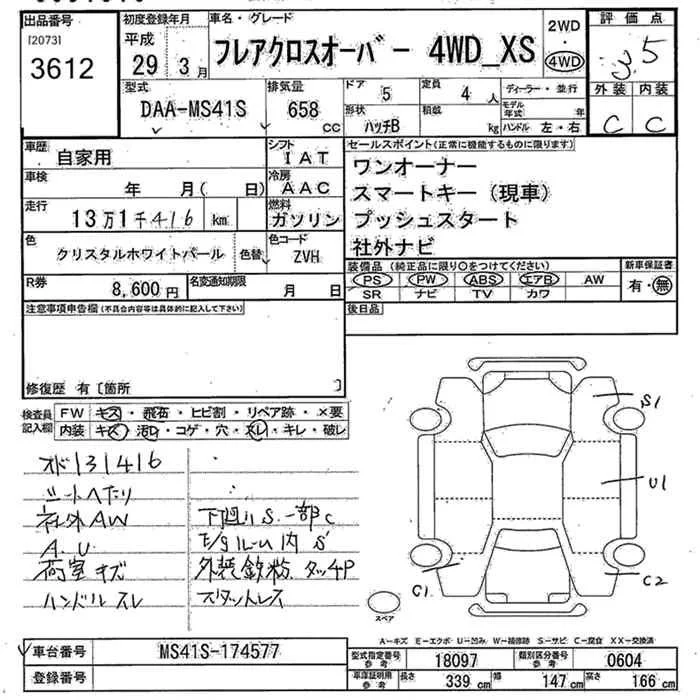 出品番号
[2073]
3612
初度登録年月
平成
29年3月
車名・グレード
フレアクロスオーバー 4WD_XS
2WD
・
4WD
評価点
3.5
外装 内装
C C
型式
DAA-MS41S
排気量
658
CC
ドア 5
定員 4人
形状 ハッチB
積載 kg
ディーラー・並行
モデル年式 年
ハンドル 左・右
車歴 自家用
シフト IAT
車検 年 月( 日)
冷房 AAC
走行 13万1千416 km
燃料 ガソリン
色 クリスタルホワイトパール 色替
色コード ZVH
R券 8,600円
名変通知期限 月 日
セールスポイント(正常に機能するものに限ります)
ワンオーナー
スマートキー(現車)
プッシュスタート
社外ナビ
装備品(純正品に限り○をつけてください) 新車保証書
PS PW ABS エアB AW 有・無
SR ナビ TV カワ
後日品
注意事項申告欄(不具合内容等は具体的に記入して下さい)
修復歴 有〔箇所 〕
検査員記入欄
FW キズ・飛石・ヒビ割・リペア跡・×要
内装 キズ・汚レ・コゲ・穴・スレ・キレ・破レ
オド131416
シートヘタリ
社外AW
A.U
荷室キズ
ハンドルスレ
下廻リS.一部C
E/gルーム内S
外装鉄粉 タッチP
スタットレス
S1
U1
C1
C2
スペア
A−キズ E−エクボ U−凹み W−補修跡 S−サビ C−腐食 XX−交換済
車台番号 MS41S-174577
登録番号
型式指定番号参考 18097 類別区分番号参考 0604
車庫証明用参考 長さ 339cm 幅 147cm 高さ 166cm